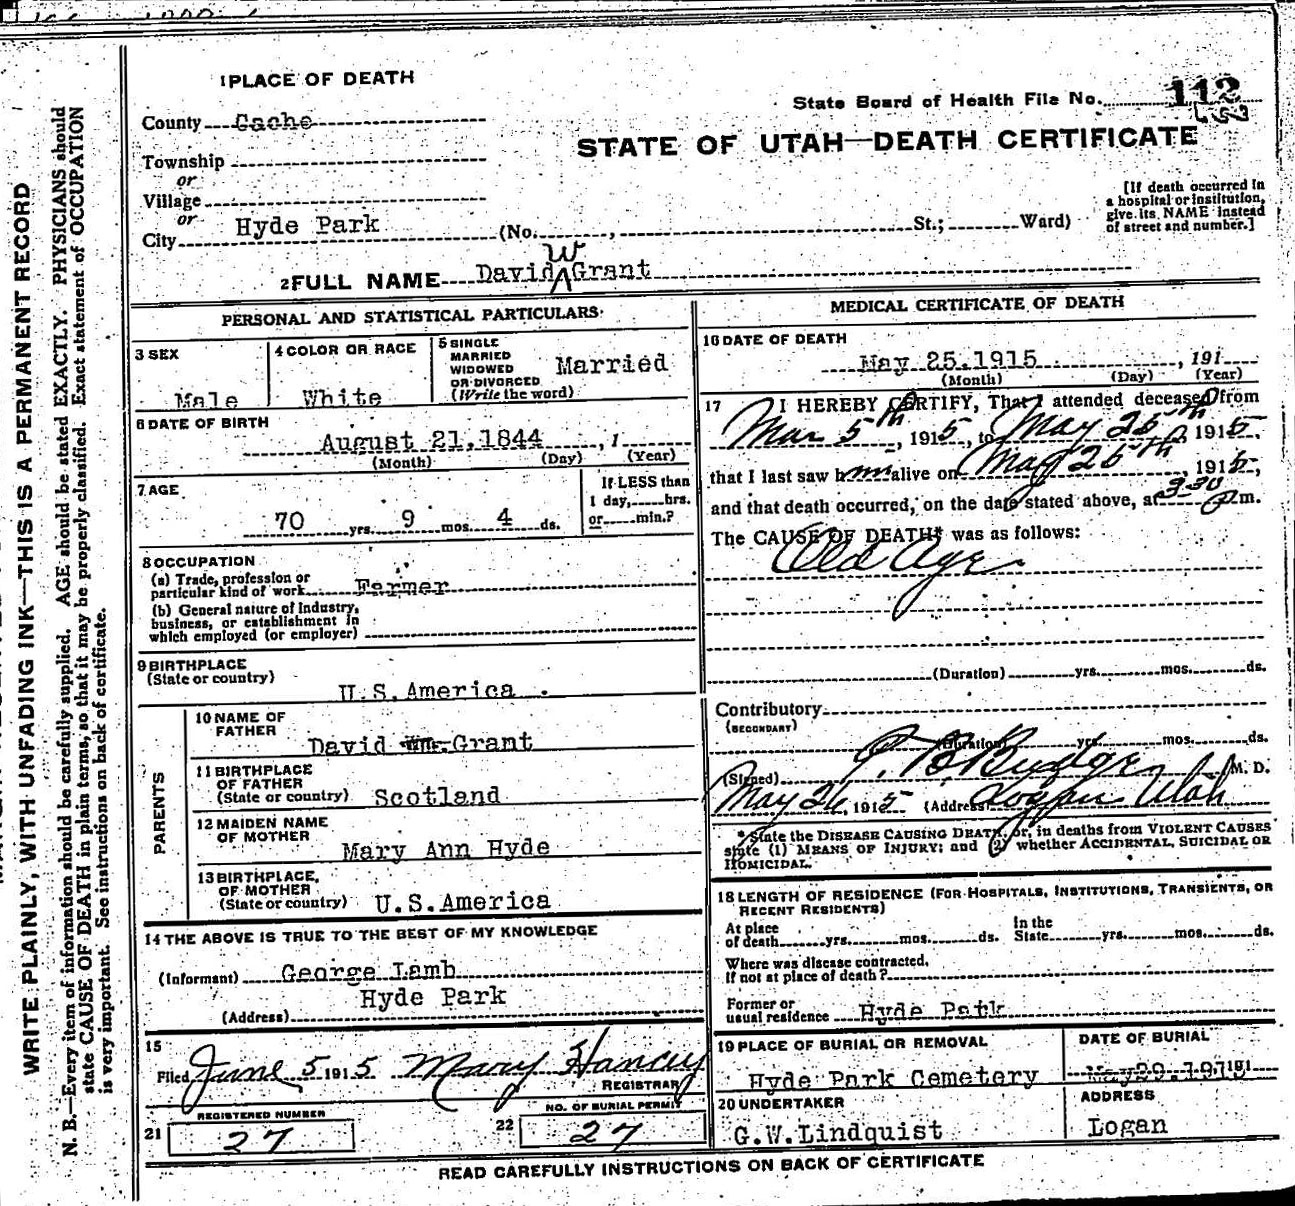 1 PLACE OF DEATH
State Board of Health File No. 112
County Cache
STATE OF UTAH—DEATH CERTIFICATE
Township
or
Village
or
City Hyde Park (No. , St.; Ward)
[If death occurred in
a hospital or institution,
give its NAME instead
of street and number.]
W
2 FULL NAME David Grant
PERSONAL AND STATISTICAL PARTICULARS
3 SEX
Male
4 COLOR OR RACE
White
5 SINGLE
MARRIED
WIDOWED
OR DIVORCED
(Write the word)
Married
6 DATE OF BIRTH
August 21,1844 , 1
(Month) (Day) (Year)
7 AGE
70 yrs. 9 mos. 4 ds.
If LESS than
1 day, hrs.
or min.?
8 OCCUPATION
(a) Trade, profession or
particular kind of work Farmer
(b) General nature of Industry,
business, or establishment in
which employed (or employer)
9 BIRTHPLACE
(State or country)
U.S.America .
PARENTS
10 NAME OF
FATHER
David Wm. Grant
11 BIRTHPLACE
OF FATHER
(State or country) Scotland
12 MAIDEN NAME
OF MOTHER
Mary Ann Hyde
13 BIRTHPLACE,
OF MOTHER
(State or country) U.S.America
14 THE ABOVE IS TRUE TO THE BEST OF MY KNOWLEDGE
(Informant) George Lamb
Hyde Park
(Address)
15
Filed June 5 1915 Mary Hancey
REGISTRAR
REGISTERED NUMBER
21 27
NO. OF BURIAL PERMIT
22 27
MEDICAL CERTIFICATE OF DEATH
16 DATE OF DEATH
May 25,1915 , 191
(Month) (Day) (Year)
17 I HEREBY CERTIFY, That I attended deceased from
Mar 5th, 1915, to May 25th, 1915,
that I last saw him alive on May 25th, 1915,
and that death occurred, on the date stated above, at 3-30 P m.
The CAUSE OF DEATH* was as follows:
Old Age
(Duration) yrs. mos. ds.
Contributory
(SECONDARY)
(Duration) yrs. mos. ds.
(Signed) Budge M. D.
May 26, 1915 (Address) Logan Utah
*State the DISEASE CAUSING DEATH, or, in deaths from VIOLENT CAUSES
state (1) MEANS OF INJURY; and (2) whether ACCIDENTAL, SUICIDAL OR
HOMICIDAL.
18 LENGTH OF RESIDENCE (FOR HOSPITALS, INSTITUTIONS, TRANSIENTS, OR
RECENT RESIDENTS)
At place
of death yrs. mos. ds.
In the
State yrs. mos. ds.
Where was disease contracted,
If not at place of death?
Former or
usual residence Hyde Park
19 PLACE OF BURIAL OR REMOVAL
Hyde Park Cemetery
DATE OF BURIAL
May 29, 1915 191
20 UNDERTAKER
G.W.Lindquist
ADDRESS
Logan
READ CAREFULLY INSTRUCTIONS ON BACK OF CERTIFICATE
WRITE PLAINLY, WITH UNFADING INK—THIS IS A PERMANENT RECORD
N. B.—Every item of information should be carefully supplied. AGE should be stated EXACTLY. PHYSICIANS should
state CAUSE OF DEATH in plain terms, so that it may be properly classified. Exact statement of OCCUPATION
is very important. See instructions on back of certificate.